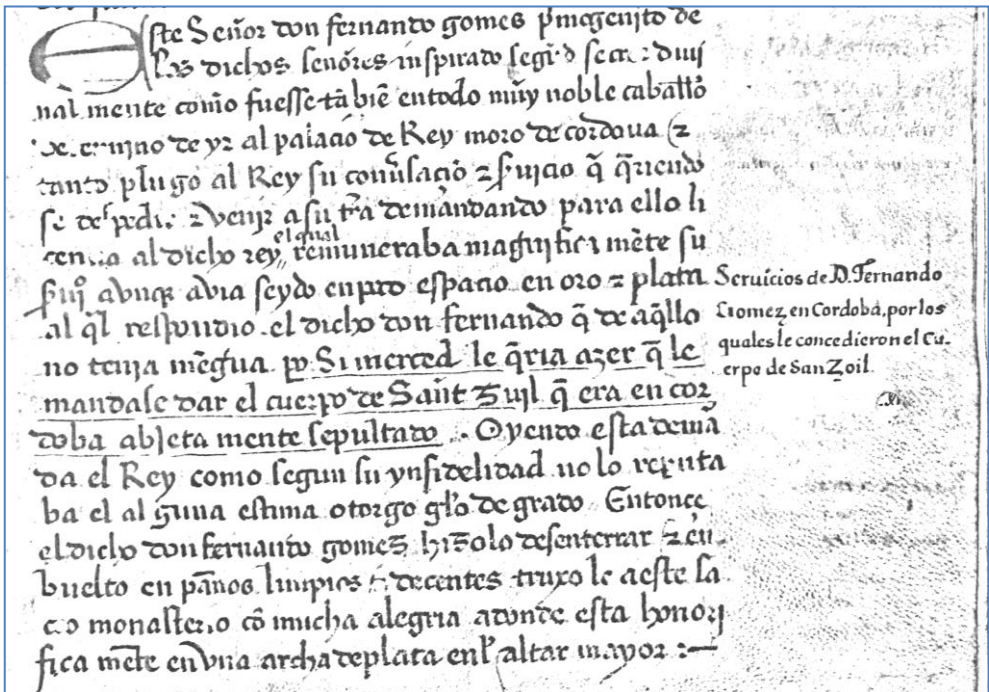 Este Señor don fernando gomes p̃mogenito de
los dichos señores inspirado segũd
nal mente como fuesse tã biẽ en todo muy noble caball̃o
de yr al palacio de Rey moro de cordova (z
tanto plugo al Rey su conṽsaciõ z s̃uicio q̃ q̃riendo
se z venir a su tr̃a demandando para ello li
al dicho rey, el qual remuneraba magnifica mẽte su
avnq̃ avia seydo en espacio en oro z plata
al q̃l respondio el dicho don fernando q̃ de aq̃llo
no tenia mẽgua. po Si merced le q̃ria azer q̃ le
mandase dar el cuerpo de Sañt Zuil q̃ era en cor
doba abjeta mente sepultado .. Oyendo esta demã
da el Rey como segun su ynfidelidad no lo reputa
ba el al guna estima otorgo gelo de grado Entonce
el dicho don fernando gomez hizolo desenterrar z en
buelto en paños limpios z decentes truxo le a este sa
c.o monasterio cõ mucha alegria adonde esta honori
fica mẽte en vna archa de plata enl altar mayor :—
Servicios de D. Fernando
Gomez en Cordoba, por los
quales le concedieron el Cu-
erpo de San Zoil.